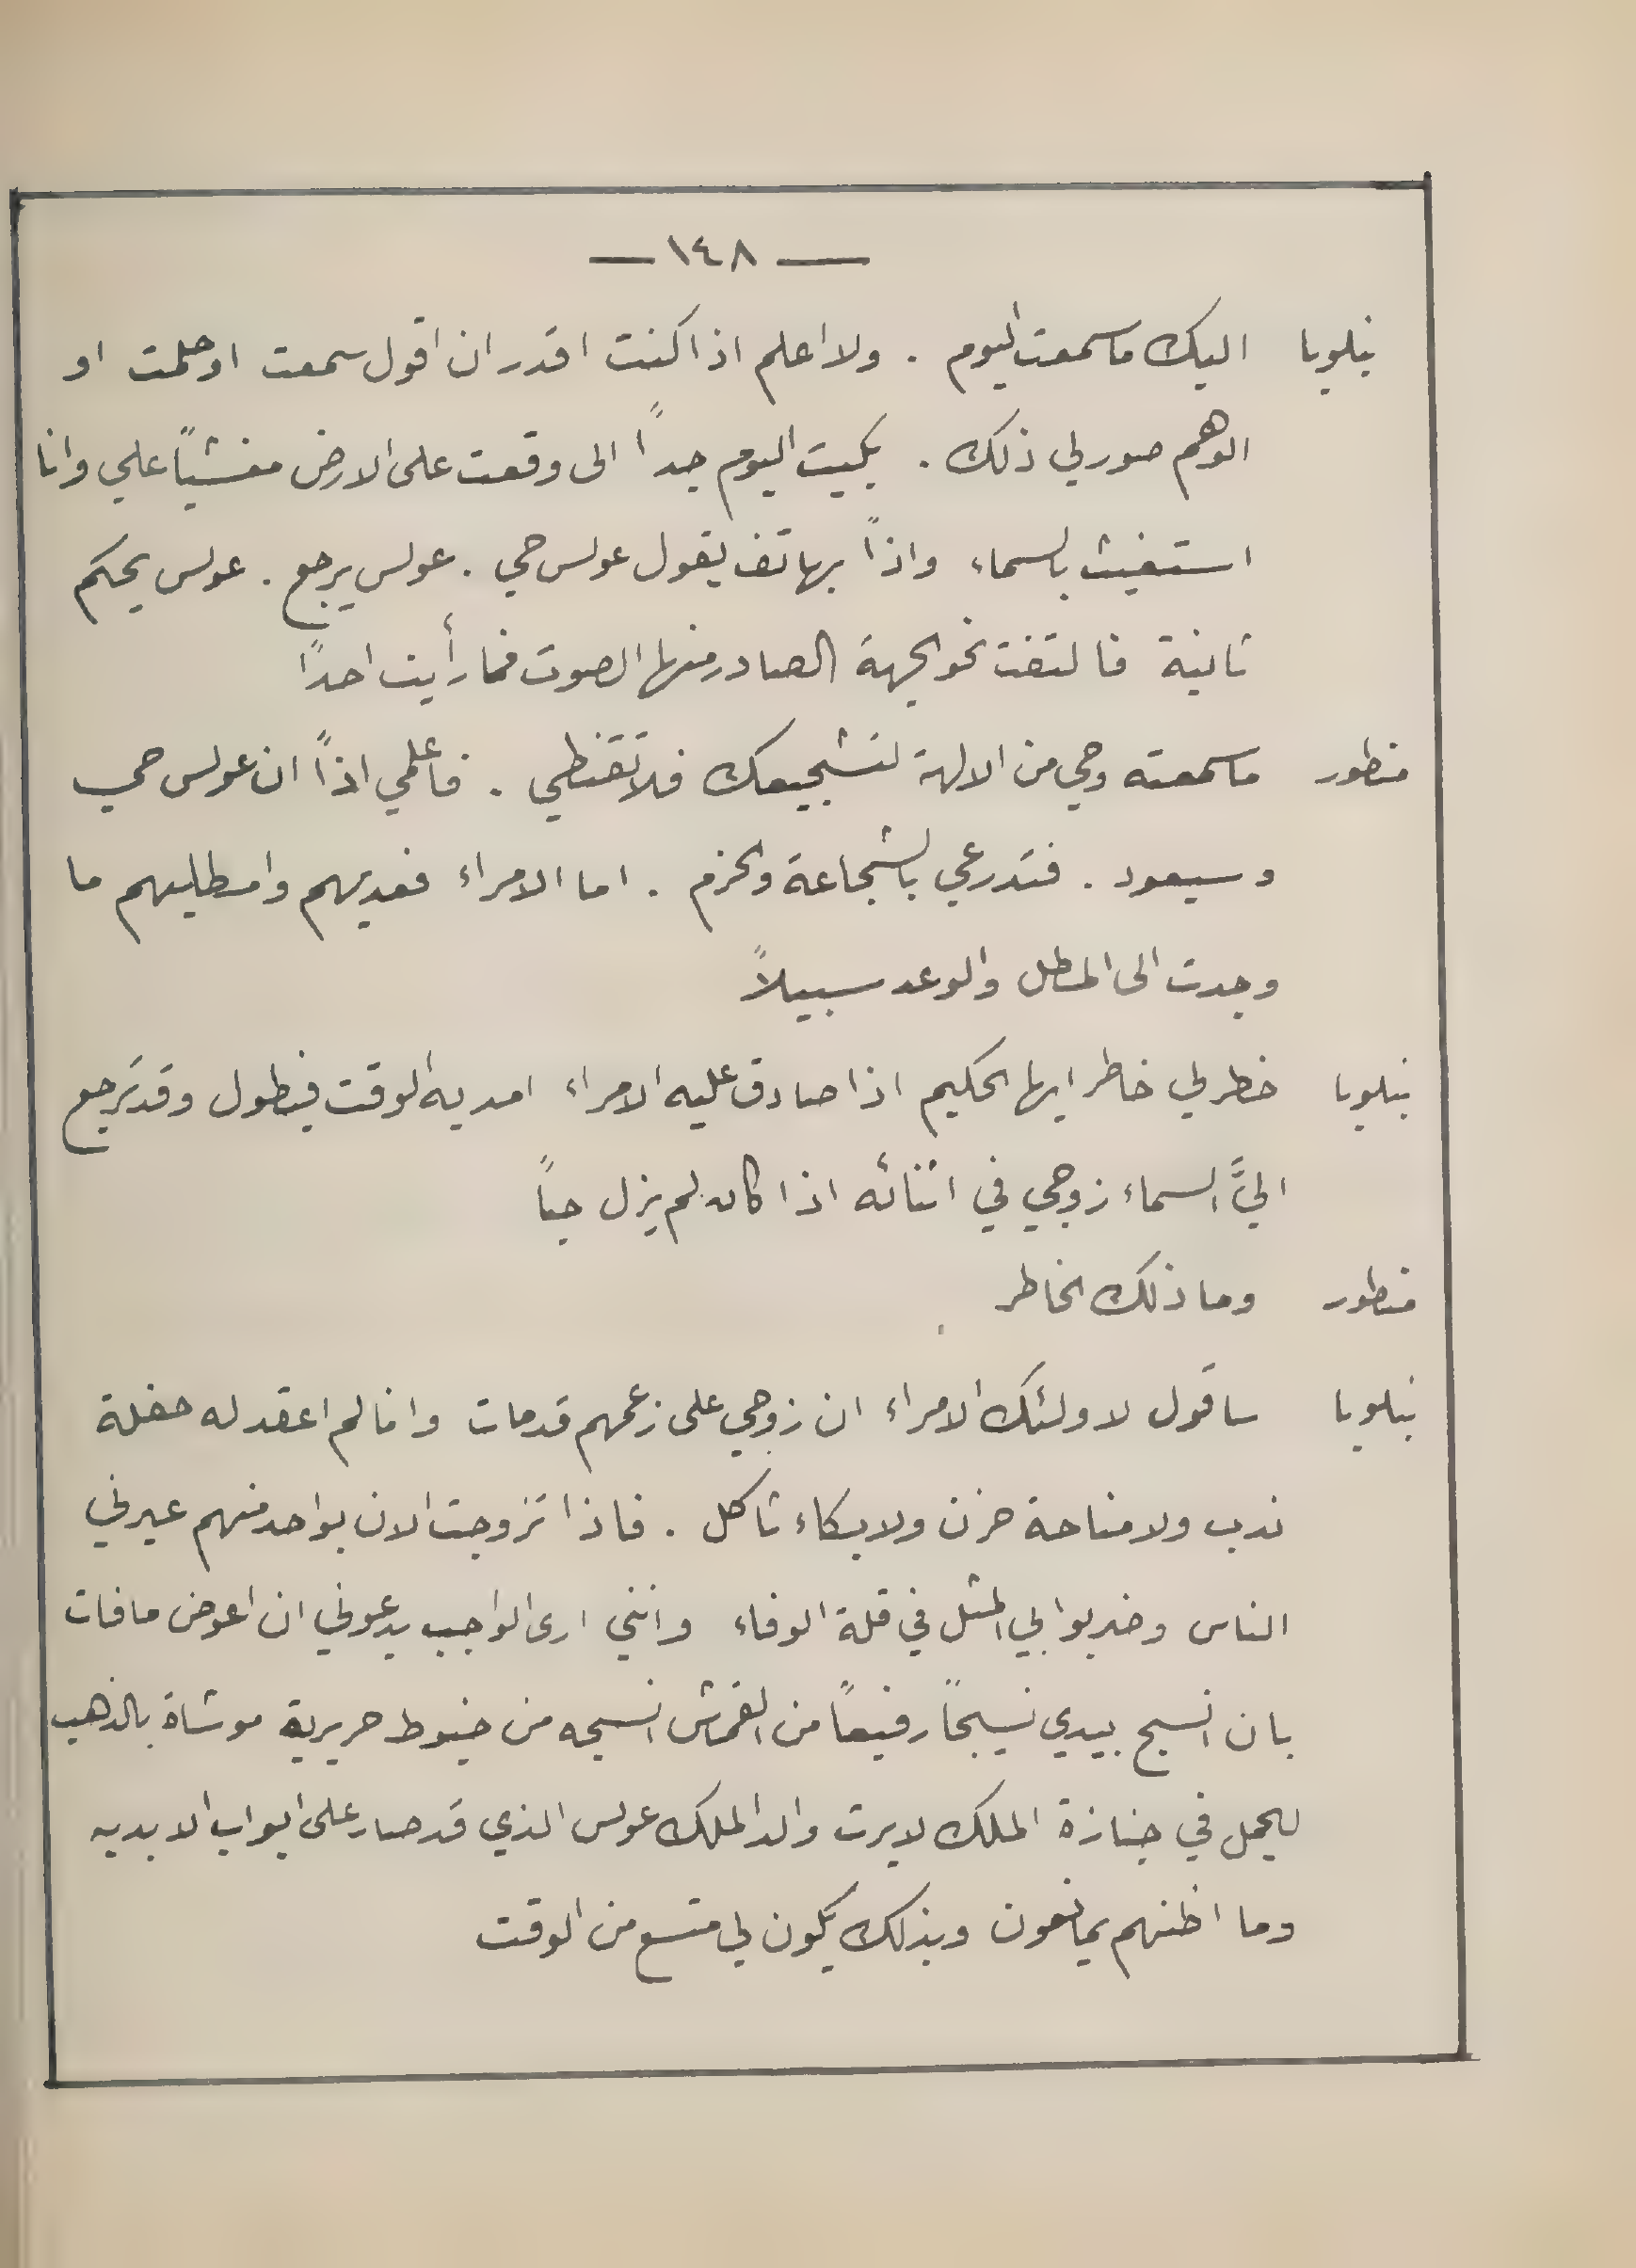 — ١٤٨ —
بنلوبا اليك ما سمعت اليوم . ولا اعلم اذا كنت اقدر ان اقول سمعت او حلمت او
الوهم صور لي ذلك . بكيت اليوم جداً الى وقعت على الارض مغشياً علي وانا
استغيث بالسماء واذاً بهاتف يقول عولس حي . عولس يرجع . عولس يحكم
ثانية فالتفت نحو الجهة الصادر منها الصوت فما رأيت احداً
منطور ما سمعته وحي من الالهة لتشجيعك فلا تقنطي . فاعلمي اذاً ان عولس حي
وسيعود . فتدرعي بالشجاعة والحزم . اما الامراء فعديهم وامطليهم ما
وجدت الى المطل والوعد سبيلاً
بنلوبا خطر لي خاطر ايها الحكيم اذا صادق عليه الامراء امد به الوقت فيطول وقد ترجع
اليَّ السماء زوجي في اثنائه اذا كان لم يزل حياً
منطور وما ذلك الخاطر
بنلوبا ساقول لاولئك الامراء ان زوجي على زعمهم قد مات وانا لم اعقد له حفلة
ندب ولا مناحة حزن ولا بكاء ثاكل . فاذا تزوجت الان بواحد منهم عيرني
الناس وضربوا بي المثل في قلة الوفاء وانني ارى الواجب يدعوني ان اعوض ما فات
بان انسج بيدي نسيجاً رفيعاً من القماش انسجه من خيوط حريرية موشاة بالذهب
ليحمل في جنازة الملك لايرت والد الملك عولس الذي قد صار على ابواب الابديه
وما اظنهم يمانعون وبذلك يكون لي متسع من الوقت